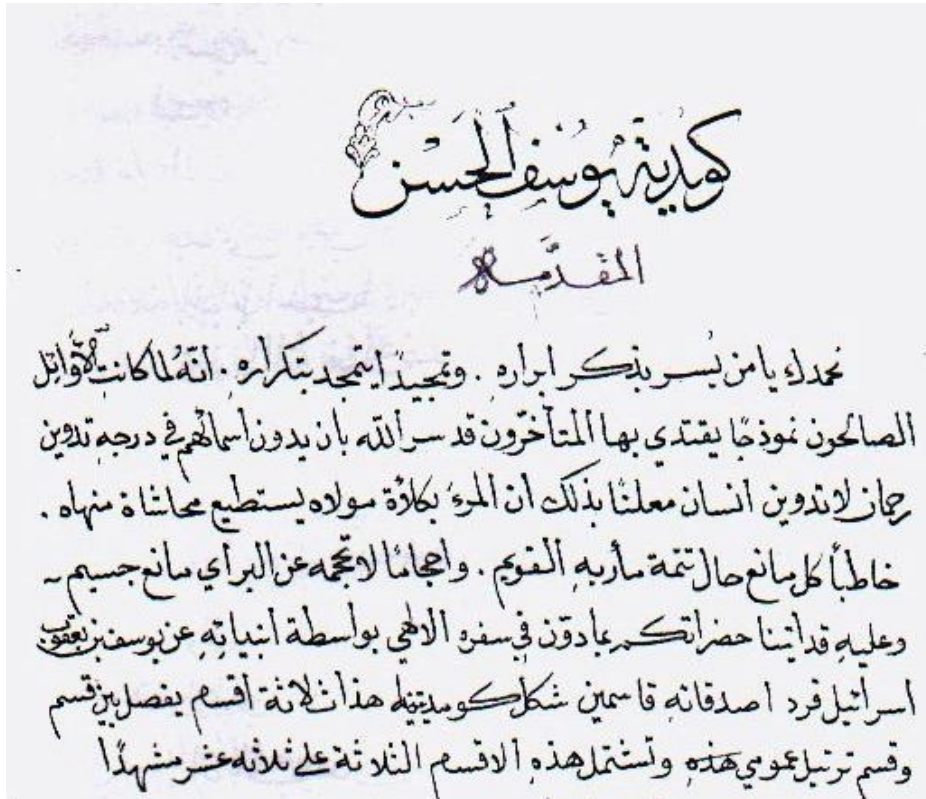 كوميدية يوسف الحسن
المقدمة
نحمدك يا من يُسر بذكر ابراره . وتمجيدًا يتمجد بتكراره . انّهُ لما كانت الاوائل
الصالحون نموذجًا يقتدي بها المتأخرون قد سر الله بان يدون اسمائهم في درجه تدوين
رحمان لا تدوين انسان معلنًا بذلك أن المرء بكلاءة مولاه يستطيع محاشاة منهاه .
كل مانع حال تتمة مأربهِ القويم . واحجامًا لا عن البر أي مانع جسيم ~
وعليهِ قد أتينا حضراتكم بما دوّن في سفره الالهي بواسطة أنبيائِهِ عن يوسف بن يعقوب
اسرائيل فرد اصدقائه قاسمين شكل هذا ثلاثة اقسام يفصل بين قسم
وقسم ترتيل عمومي هذه وتشتمل هذهِ الاقسام الثلاثة على ثلاثه عشر مشهدًا